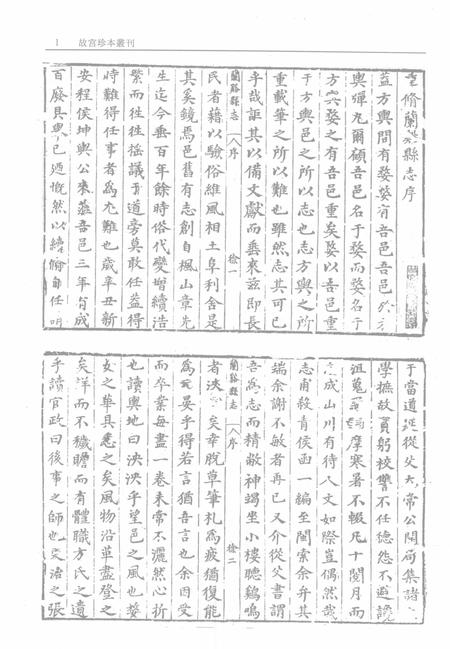 1 故宮珍本叢刊
脩蘭谿縣志序
蓋方輿間有婺婺有吾邑吾邑於
輿彈丸爾顧吾邑名于婺而婺名于
方輿婺之有吾邑重矣婺以吾邑重
于方輿邑之所以志也志方輿之所
重載筆之所以難也雖然志其可已
乎哉詎其以備文獻而垂來茲即長
蘭谿縣志 序 一
民者藉以驗俗維風相土阜利舍是
其奚鏡焉邑舊有志創自楓山章先
生迄今垂百年餘時俗代變增續浩
繁而往往搖議于道旁莫敢任蓋得
時難得任事者為尤難也歲辛丑新
安程侯坤輿公來蒞吾邑三年有成
百廢具興已迺慨然以續脩自任
于當道延從父大常公開局集諸
學摭故實躬校讐不任德怨不避譏
詛蒐羅編摩寒暑不輟凡十閱月而
志成山川有待人文如際豈偶然哉
志甫殺青侯函一編至閩索余弁其
端余謝不敏者再已又介從父書謂
吾為志而精敝神竭坐小樓聽鷄鳴
蘭谿縣志 序 二
者浹矣幸脫草筆札為疲猶復能
為元晏乎得若言猶吾言也余因受
而卒業每盡一卷未常不灑然心折
也讀輿地曰泱泱乎望邑之風也婺
女之華具悉之矣風物沿革盡登之
矣詳而不穢贍而有體職方氏之遺
乎讀官政曰後事之師也諸之張